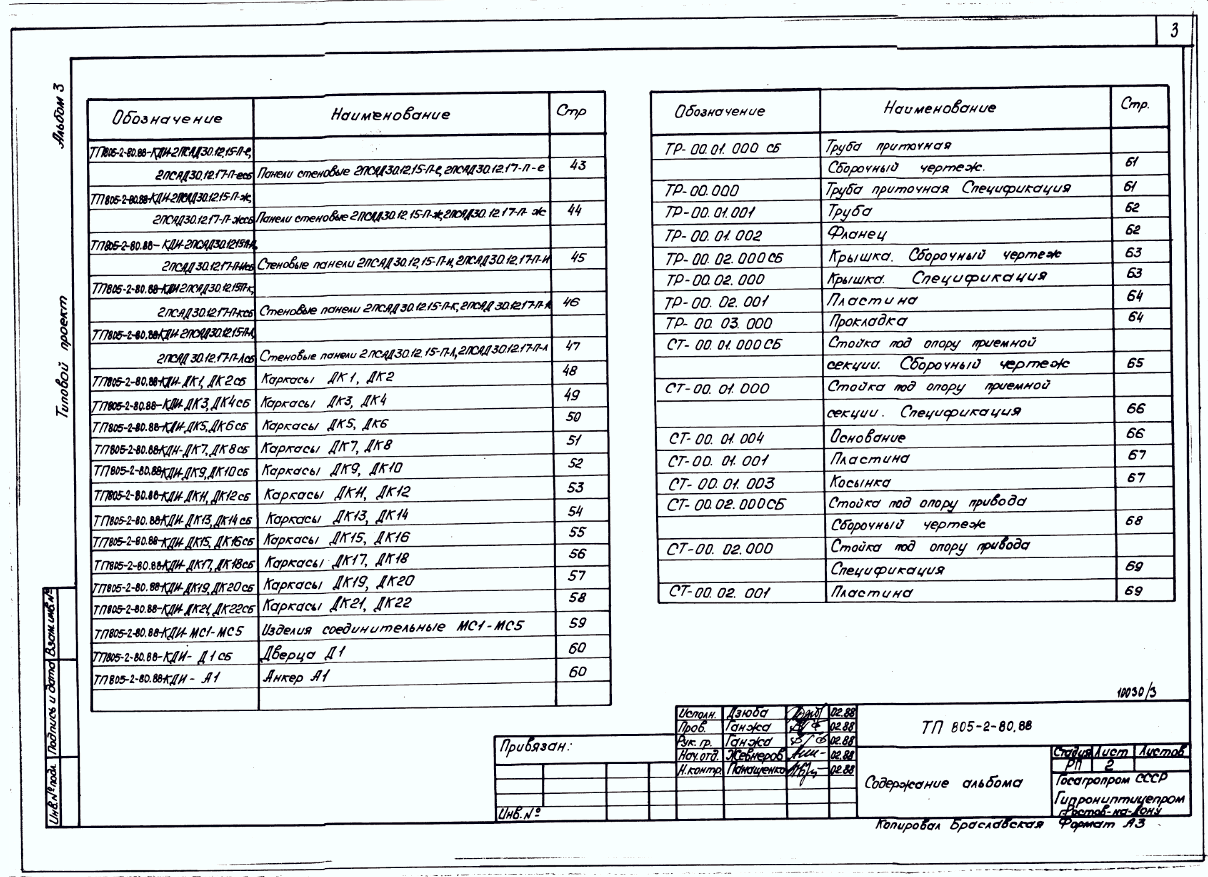 3
Альбом 3
Типовой проект
Обозначение Наименование Стр
ТП805-2-80.88-КДИ-2ПСАД30.12.15-П-е,
2ПСАД30.12.17-П-есб Панели стеновые 2ПСАД30.12.15-П-е, 2ПСАД30.12.17-П-е 43
ТП805-2-80.88-КДИ-2ПСАД30.12.15-П-ж,
2ПСАД30.12.17-П-жсб Панели стеновые 2ПСАД30.12.15-П-ж, 2ПСАД30.12.17-П-ж 44
ТП805-2-80.88-КДИ-2ПСАД30.12.15П-И,
2ПСАД30.12.17-П-Исб Стеновые панели 2ПСАД30.12.15-П-И, 2ПСАД30.12.17-П-И 45
ТП805-2-80.88-КДИ 2ПСАД30.12.15П-к,
2ПСАД30.12.17-П-ксб Стеновые панели 2ПСАД30.12.15-П-К, 2ПСАД30.12.17-П-К 46
ТП805-2-80.88-КДИ-2ПСАД30.12.15-П-Л,
2ПСАД30.12.17-П-Лсб Стеновые панели 2ПСАД30.12.15-П-Л, 2ПСАД30.12.17-П-Л 47
ТП805-2-80.88-КДИ-ДК1, ДК2сб Каркасы ДК1, ДК2 48
ТП805-2-80.88-КДИ-ДК3, ДК4сб Каркасы ДК3, ДК4 49
ТП805-2-80.88-КДИ-ДК5, ДК6сб Каркасы ДК5, ДК6 50
ТП805-2-80.88-КДИ-ДК7, ДК8сб Каркасы ДК7, ДК8 51
ТП805-2-80.88-КДИ-ДК9, ДК10сб Каркасы ДК9, ДК10 52
ТП805-2-80.88-КДИ-ДК11, ДК12сб Каркасы ДК11, ДК12 53
ТП805-2-80.88-КДИ-ДК13, ДК14сб Каркасы ДК13, ДК14 54
ТП805-2-80.88-КДИ-ДК15, ДК16сб Каркасы ДК15, ДК16 55
ТП805-2-80.88-КДИ-ДК17, ДК18сб Каркасы ДК17, ДК18 56
ТП805-2-80.88-КДИ-ДК19, ДК20сб Каркасы ДК19, ДК20 57
ТП805-2-80.88-КДИ-ДК21, ДК22сб Каркасы ДК21, ДК22 58
ТП805-2-80.88-КДИ-МС1-МС5 Изделия соединительные МС1-МС5 59
ТП805-2-80.88-КДИ-Д1сб Дверца Д1 60
ТП805-2-80.88-КДИ-А1 Анкер А1 60
Обозначение Наименование Стр.
ТР-00.01.000 СБ Труба приточная
Сборочный чертеж. 61
ТР-00.000 Труба приточная Спецификация 61
ТР-00.01.001 Труба 62
ТР-00.01.002 Фланец 62
ТР-00.02.000СБ Крышка. Сборочный чертеж 63
ТР-00.02.000 Крышка. Спецификация 63
ТР-00.02.001 Пластина 64
ТР-00.03.000 Прокладка 64
СТ-00.01.000СБ Стойка под опору приемной
секции. Сборочный чертеж 65
СТ-00.01.000 Стойка под опору приемной
секции. Спецификация 66
СТ-00.01.004 Основание 66
СТ-00.01.001 Пластина 67
СТ-00.01.003 Косынка 67
СТ-00.02.000СБ Стойка под опору привода
Сборочный чертеж 68
СТ-00.02.000 Стойка под опору привода
Спецификация 69
СТ-00.02.001 Пластина 69
10030/3
Исполн. Дзюба 02.88
Пров. Ганжа 02.88
Рук. гр. Ганжа 02.88
Нач.отд. Жевнеров 02.88
Н.контр. Панащенко 02.88
ТП 805-2-80.88
Содержание альбома
Стадия Лист Листов
РП 2
Госагропром СССР
Гипрониптицепром
Ростов-на-Дону
Привязан:
Инв.№
Копировал Браславская Формат А3
Инв.№подл. Подпись и дата Взам.инв.№